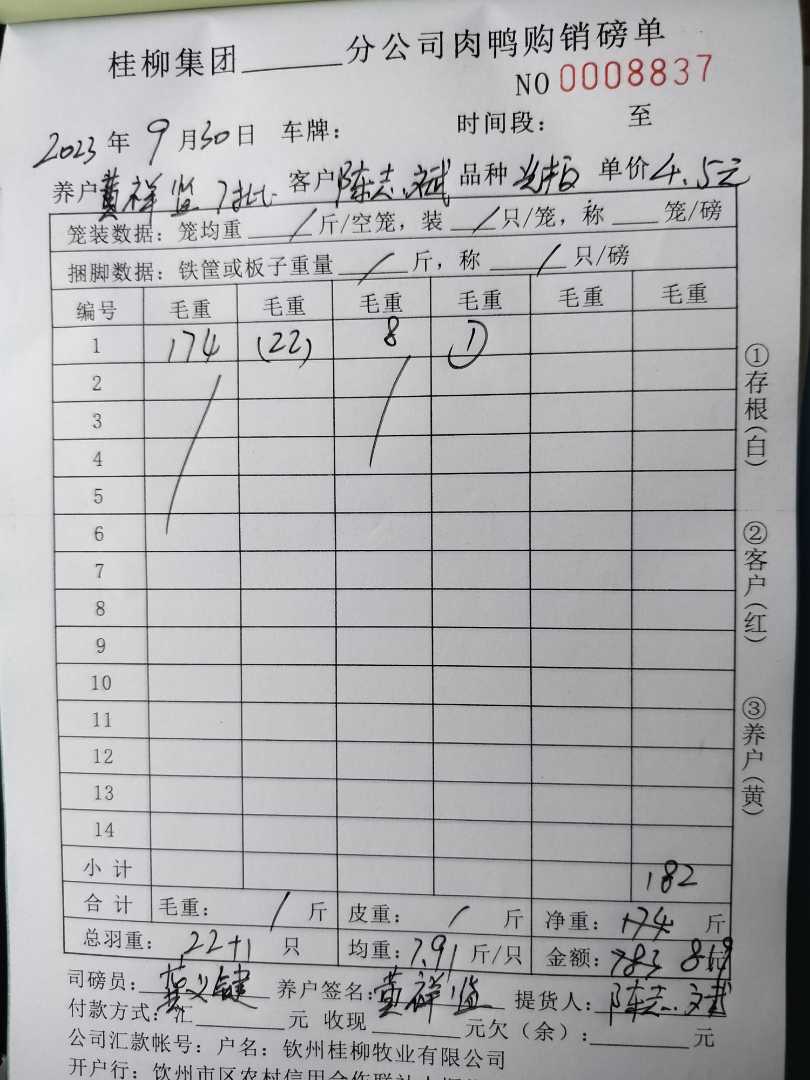 桂柳集团______分公司肉鸭购销磅单
NO 0008837
2023年 9月30日 车牌： 时间段： 至
养户黄祥监 7批 客户陈志文斌 品种 单价4.5元
笼装数据：笼均重 / 斤/空笼，装 / 只/笼，称 ___ 笼/磅
捆脚数据：铁筐或板子重量 / 斤，称 / 只/磅
编号 毛重 毛重 毛重 毛重 毛重 毛重
1 174 (22) 8 ①
2
3
4
5
6
7
8
9
10
11
12
13
14
小计 182
合计 毛重： / 斤 皮重： / 斤 净重：174 斤
总羽重：22+1 只 均重：7.91 斤/只 金额：783 819
司磅员： 养户签名：黄祥监 提货人：陈志文斌
付款方式：汇______元 收现______元欠（余）：______元
公司汇款帐号：户名：钦州桂柳牧业有限公司
开户行：钦州市区农村信用合作联社
①存根（白）
②客户（红）
③养户（黄）